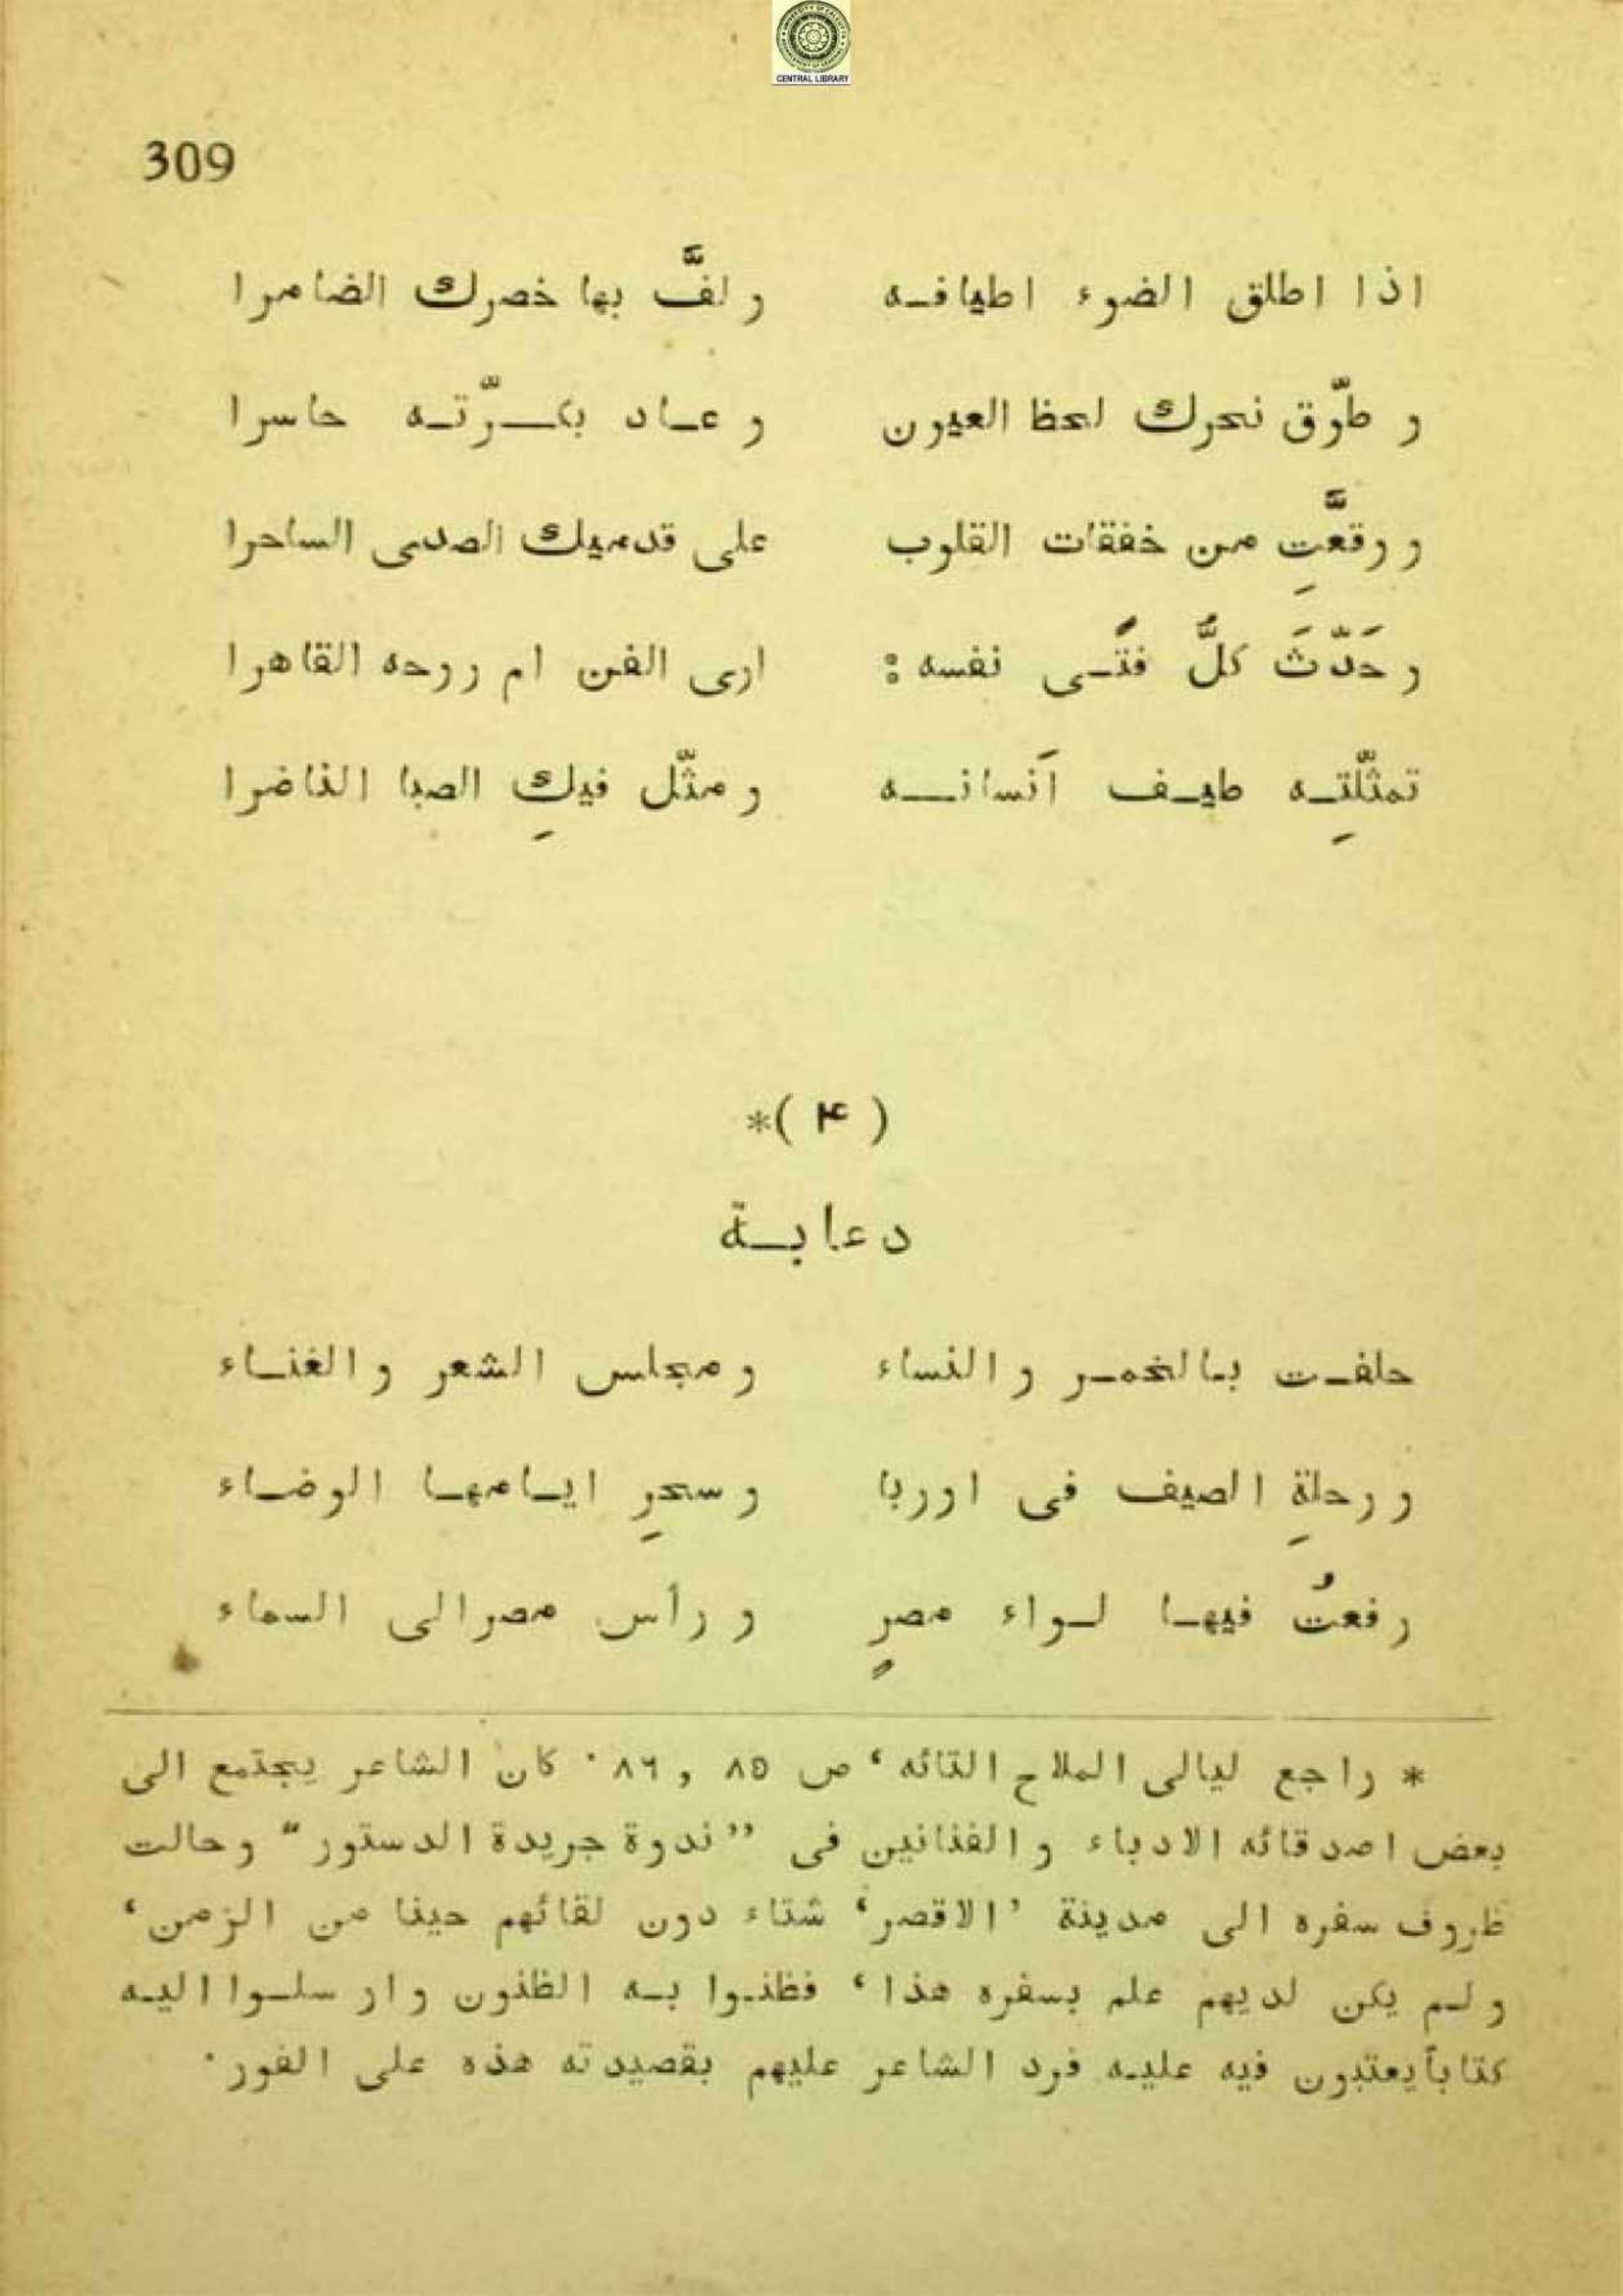 CENTRAL LIBRARY
309
اذا اطلق الضوء اطيافه ولفَّ بها خصرك الضامرا
وطوّق نحرك لحظ العيون وعاد بكرّته حاسرا
ووقعَّتِ من خفقات القلوب على قدميك الصدى الساحرا
وحَدّثَ كلُّ فتًى نفسه: ارى الفن ام روحه القاهرا
تمثّلتِه طيف اَنسانه ومثّل فيكِ الصبا الناضرا
(۴)*
دعابة
حلفت بالخمر والنساء ومجلس الشعر والغناء
ورحلةِ الصيف فى اوربا وسحرِ ايامها الوضاء
رفعتُ فيها لواء مصرٍ ورأس مصر الى السماء
* راجع ليالى الملاح التائه، ص ٨٥ , ٨٦. كان الشاعر يجتمع الى
بعض اصدقائه الادباء والفنانين فى ”ندوة جريدة الدستور“ وحالت
ظروف سفره الى مدينة ’الاقصر‘ شتاء دون لقائهم حينا من الزمن،
ولم يكن لديهم علم بسفره هذا، فظنوا به الظنون وارسلوا اليه
كتاباً يعتبون فيه عليه فرد الشاعر عليهم بقصيدته هذه على الفور.